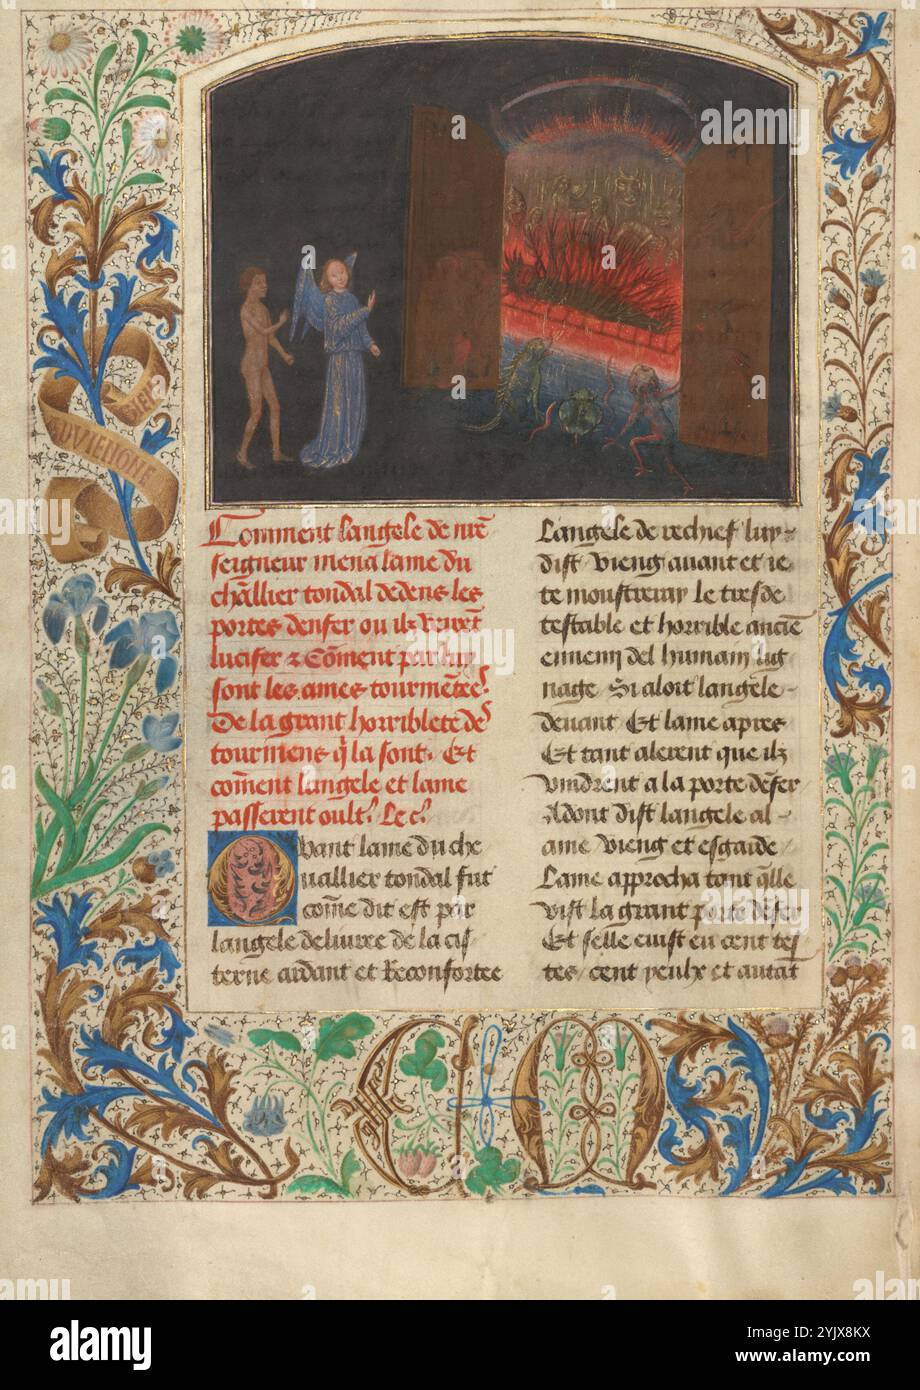 BIEN
AVIENGNE
Comment langele de mō
seigneur mena lame du
chllier tondal dedens les
portes denfer ou ilz virent
lucifer & cōment par luy
sont les ames tourmētees
De la grant horriblete des
tourmens q̄ la sont. Et
cōment langele et lame
passerent oultre. Le
Quant lame du che
uallier tondal fut
cōme dit est par
langele deliuree de la cis
terne ardant et Reconfortee
Langele de rechief luy
dist Vieng auant et ie
te monstreray le tresde
testable et horrible ancien
ennemy del humain lig
nage Si aloit langele
deuant Et lame apres
Et tant alerent que ilz
vindrent a la porte dēfer
Adont dist langele al
ame vieng et esgarde
Lame approcha tant q̄lle
vist la grant porte dēfer
Et selle euist eu cent tes
tes / cent yeulx et autāt
C M
alamy
Image ID: 2YJX8KX
www.alamy.com